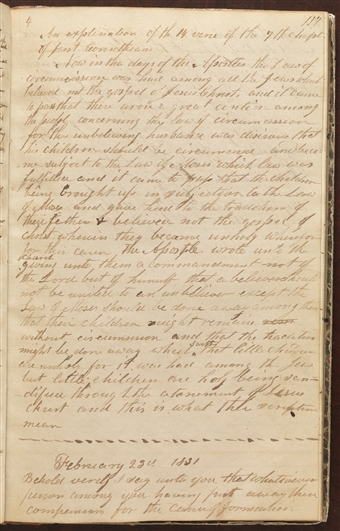 4 117
An explination of the 14 verse of the 7th chapt
of first Corinthians
Now in the days of the Apostles the Law of
circumcision was had among all the Jews who
believed not the gospel of Jesus Christ, and it came
to pass that there arose a great contention among
the people concerning the law of circumcision
for the unbelieving husband was desirous that
his children should be circumcised and become
subject to the Law of Moses which law was
fulfilled and it came to pass that the children
being brought up in subjection to the Law
of Moses and gave heed to the traditions of
their fathers & believed not the gospel of
Christ wherein they became unholy
for this cause the Apostle wrote unto the
church giving unto them a commandment not of
the Lord but of himself that a believer should
not be united to an unbeliever except the
Law of Moses should be done away among them
that their children might remain
without circumcision and that the tradition
might be done away which saith that little children
are unholy for it was had among the Jews
but little children are holy being sanc-
tified through the atonement of Jesus
Christ and this is what the scriptures
mean
February 23d 1831
Behold verily I say unto you that whatsoever
person among you having put away their
companions for the cause of fornication